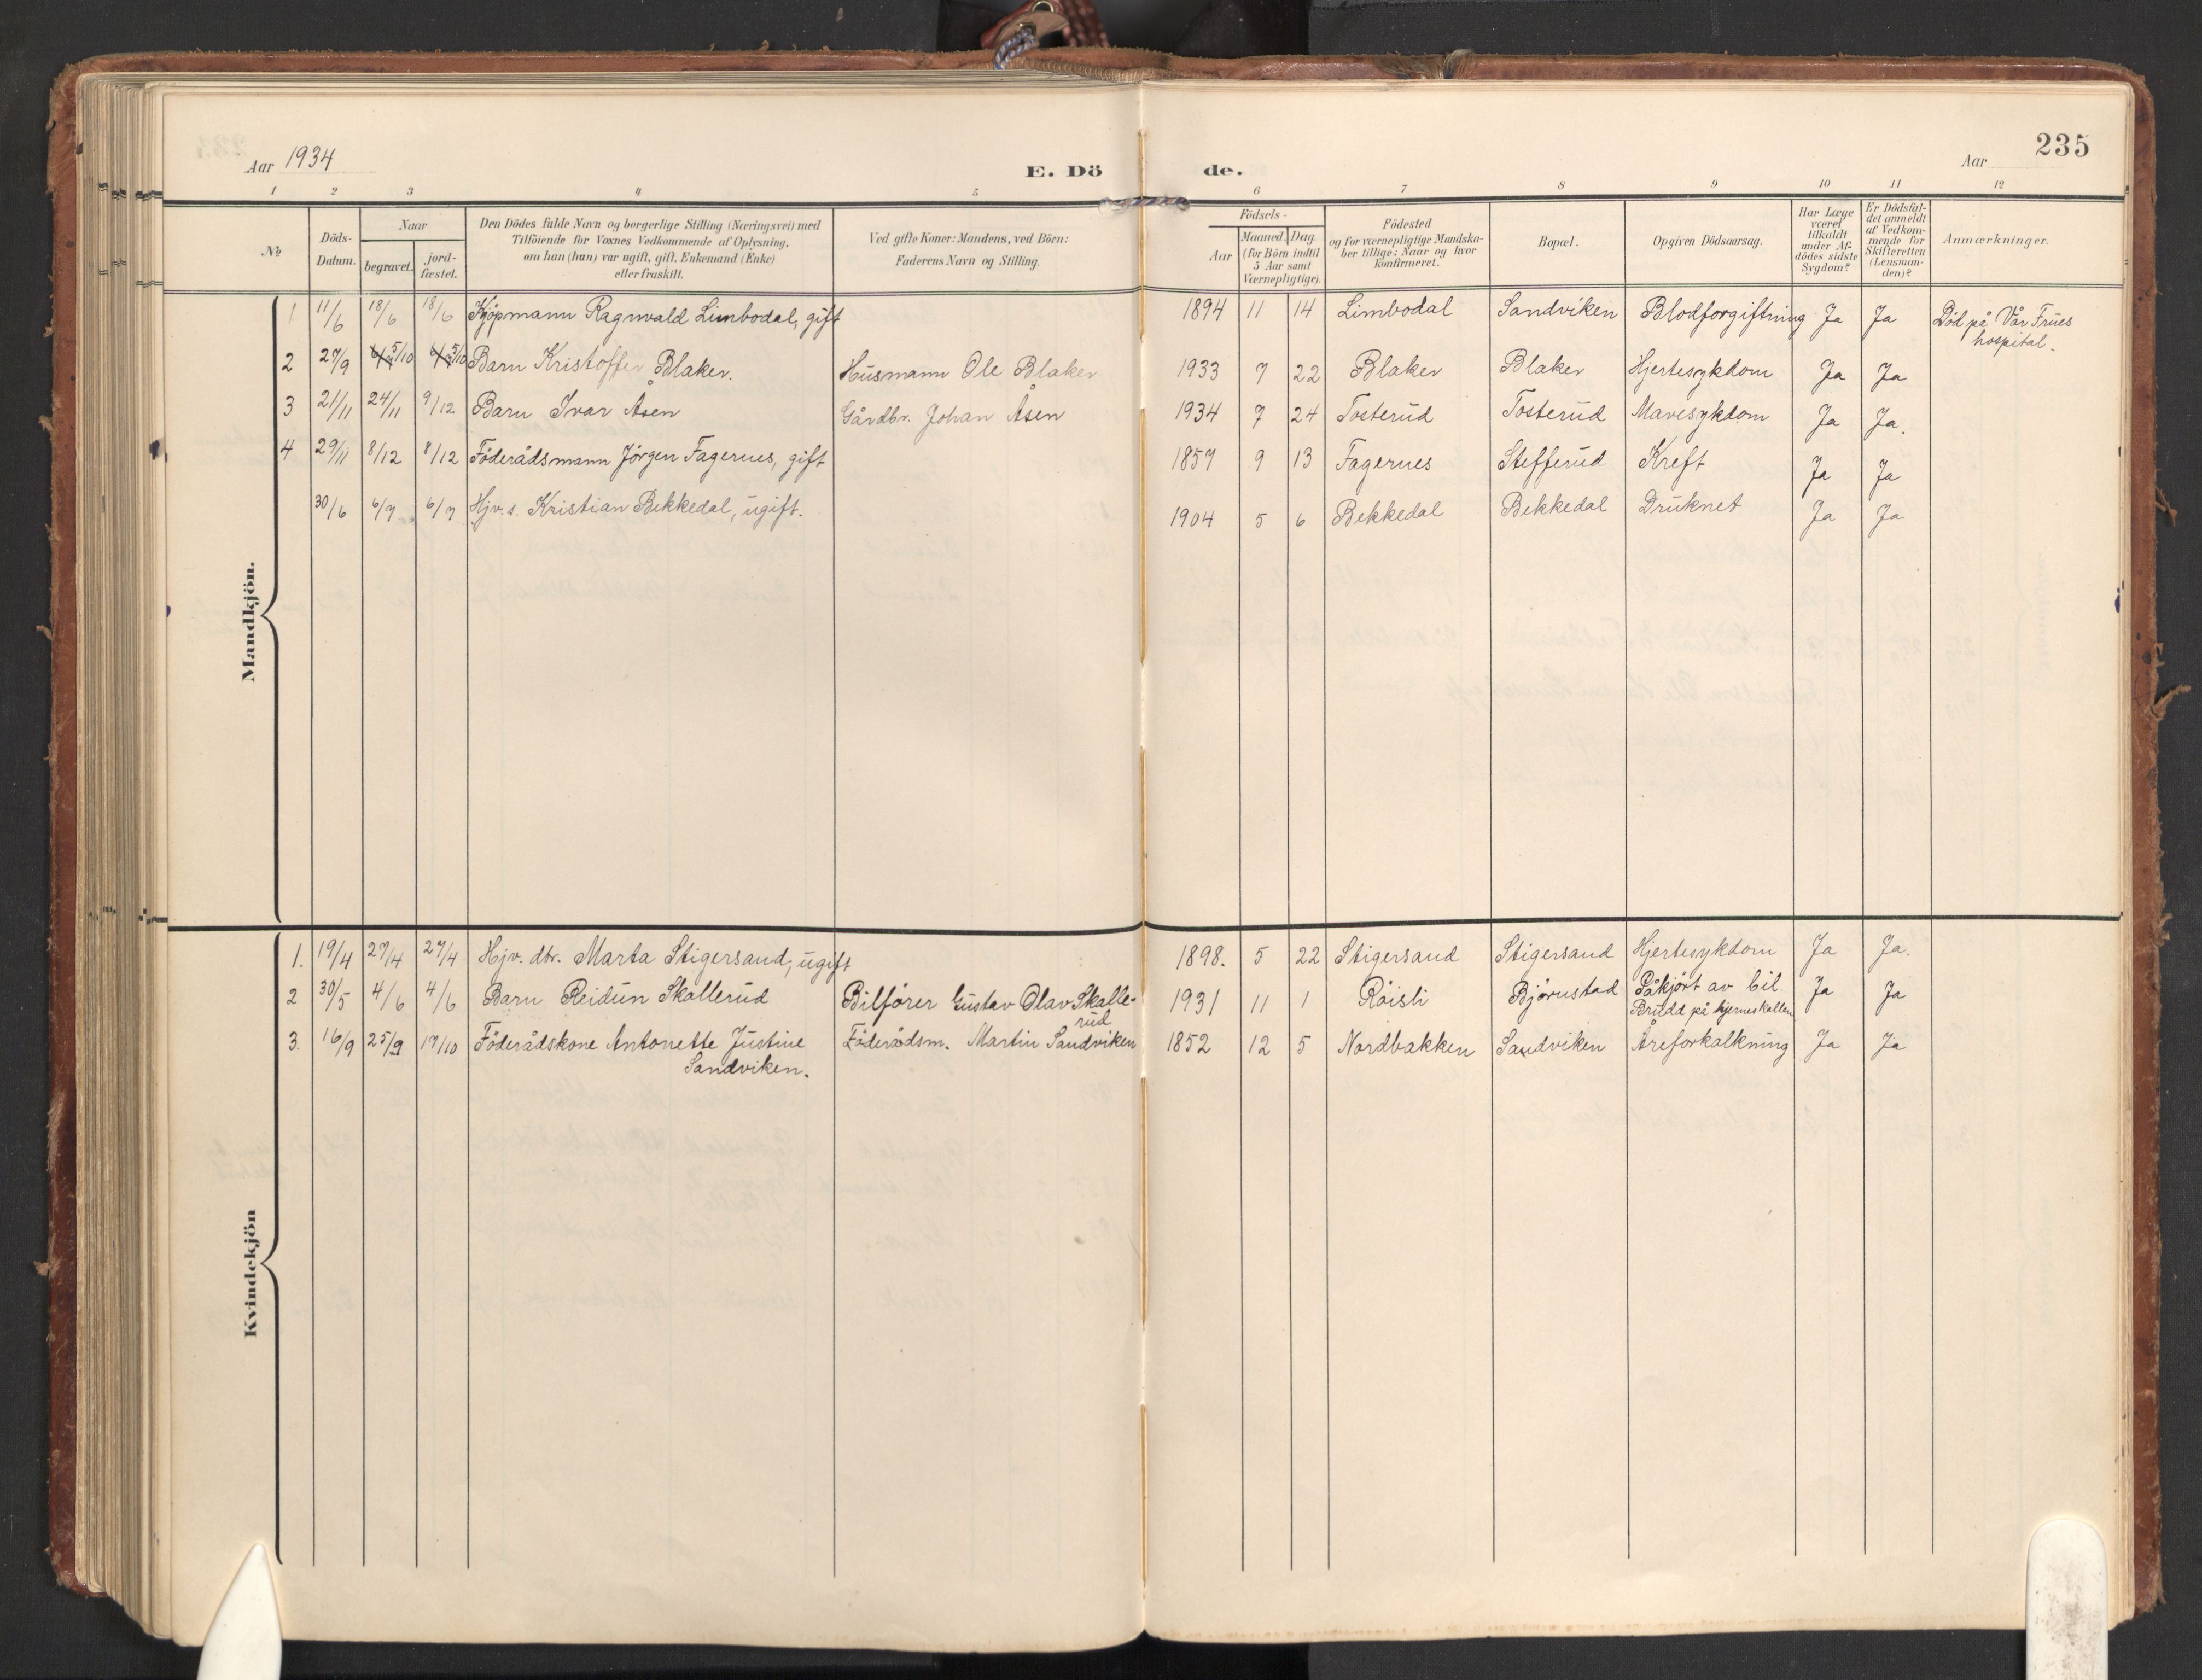 235
Aar 1934
E. Dö de.
Aar
1 2 3 4 5 6 7 8 9 10 11 12
No
Döds-Datum.
Naar
begravet.
jord-fæstet.
Den Dödes fulde Navn og borgerlige Stilling (Næringsvei) med
Tilföiende for Voxnes Vedkommende af Oplysning,
om han (hun) var ugift, gift, Enkemand (Enke)
eller fraskilt.
Ved gifte Koner: Mandens, ved Börn:
Faderens Navn og Stilling.
Födsels-
Aar
Maaned. Dag
(for Börn indtil
5 Aar samt
Værnepligtige).
Födested
og for værnepligtige Mandska-
ber tillige: Naar og hvor
konfirmeret.
Bopæl.
Opgiven Dödsaarsag.
Har Læge
været
tilkaldt
under Af-
dödes sidste
Sygdom?
Er Dödsfal-
det anmeldt
af Vedkom-
mende for
Skifteretten
(Lensman-
den)?
Anmærkninger.
Mandkjön.
1 11/6 18/6 18/6 Kjöpmann Ragnvald Limbodal, gift 1894 11 14 Limbodal Sandviken Blodforgiftning Ja Ja Död på Vår Frues
hospital.
2 27/9 5/10 5/10 Barn Kristoffer Blaker. Husmann Ole Blaker 1933 7 22 Blaker Blaker Hjertesykdom Ja Ja
3 21/11 24/11 9/12 Barn Ivar Åsen Gårdbr. Johan Åsen 1934 7 24 Tosterud Tosterud Mavesykdom Ja Ja.
4 29/11 8/12 8/12 Föderådsmann Jörgen Fagernes, gift 1857 9 13 Fagernes Stefferud Kreft Ja Ja
30/6 6/7 6/7 Hjv. s. Kristian Bekkedal, ugift. 1904 5 6 Bekkedal Bekkedal Druknet Ja Ja
Kvindekjön
1. 19/4 27/4 27/4 Hjv. dtr. Marta Stigersand, ugift 1898. 5 22 Stigersand Stigersand Hjertesykdom Ja Ja.
2 30/5 4/6 4/6 Barn Reidun Skallerud Bilförer Gustav Olav Skalle-
rud 1931 11 1 Röisli Björnstad Påkjört av bil.
Brudd på hjerneskallen Ja Ja
3. 16/9 25/9 17/10 Föderådskone Antonette Justine
Sandviken. Föderådsm. Martin Sandviken 1852 12 5 Nordbakken Sandviken Åreforkalkning Ja Ja